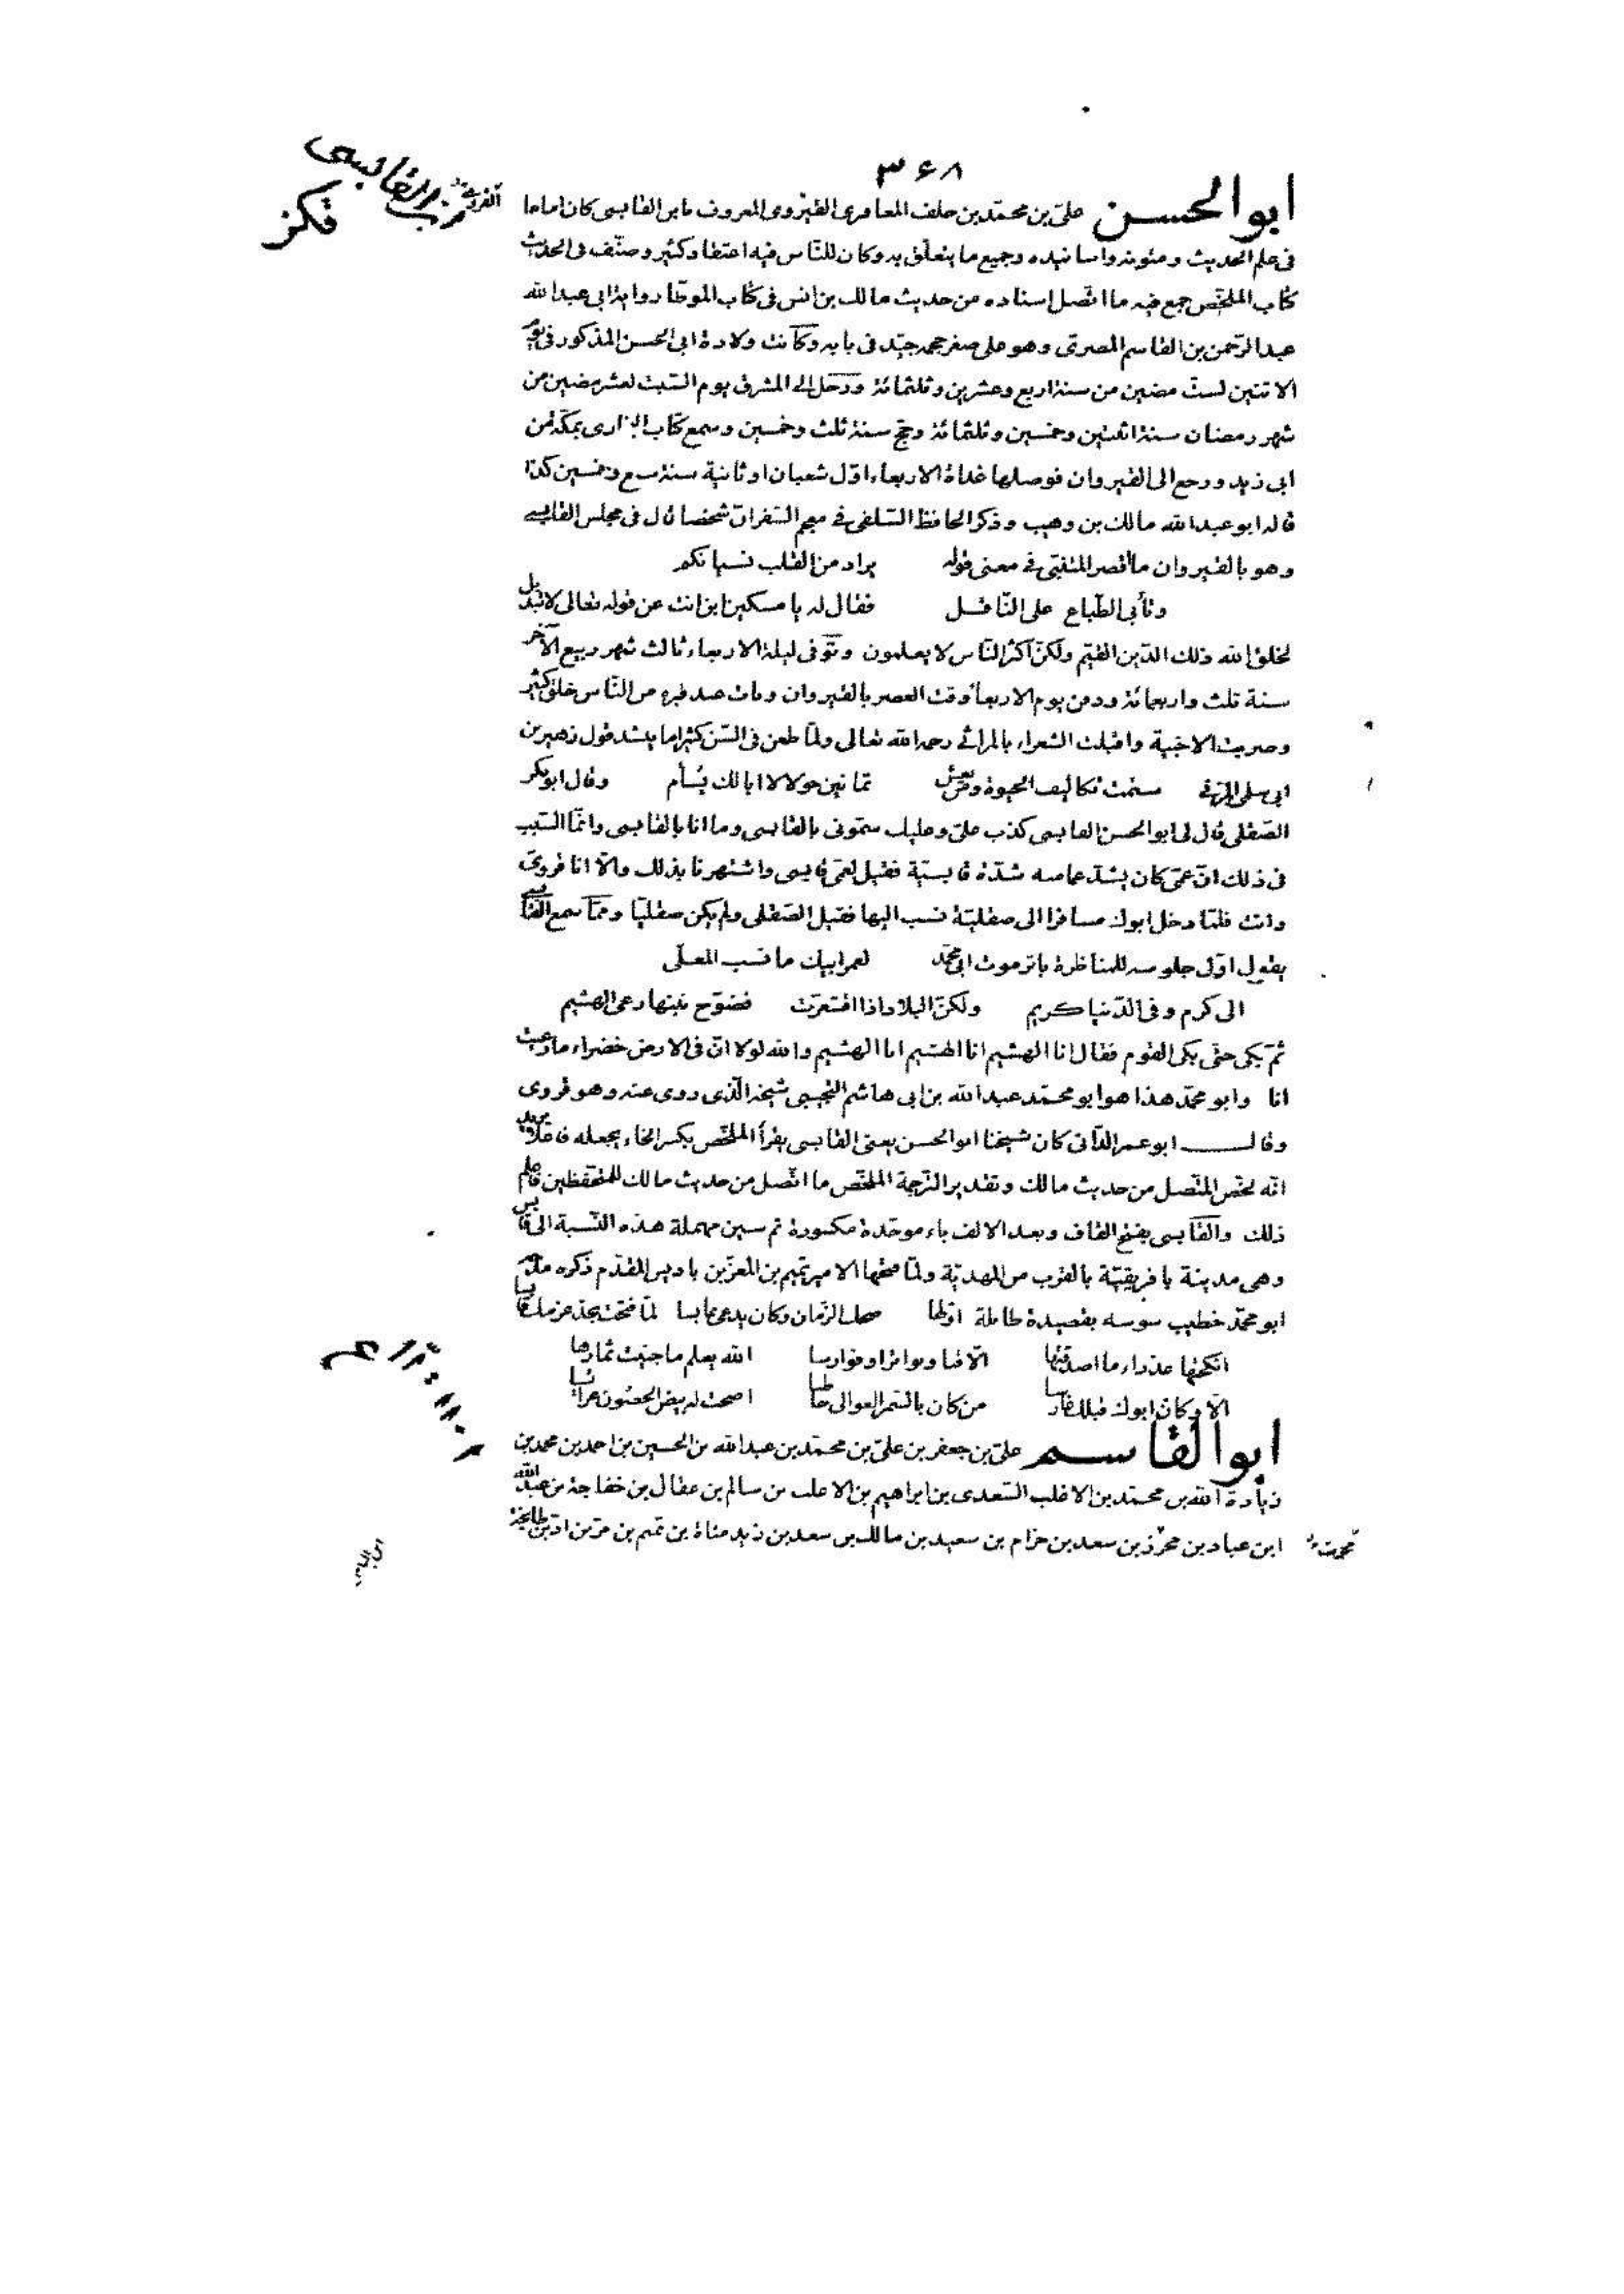 ٣٤٨
ابو الحسن علىّ بن محمّد بن خلف المعافرى القيروى المعروف بابن القابسى كان اماما
فى علم الحديث ومتونه واسانيده وجميع ما يتعلّق به وكان للنّاس فيه اعتقاد كثير وصنّف فى الحديث
كتاب الملخّص جمع فيه ما اتّصل اسناده من حديث مالك بن انس فى كتاب الموطّا رواية ابى عبد الله
عبد الرّحمن بن القاسم المصرىّ وهو على صغر حجمه جيّد فى بابه وكانت ولادة ابى الحسن المذكور فى يوم
الاثنين لستّ مضين من سنة اربع وعشرين وثلثمائة ورحل الى المشرق يوم السّبت لعشر مضين من
شهر رمضان سنة اثنتين وخمسين وثلثمائة وحجّ سنة ثلث وخمسين وسمع كتاب البخارى بمكّة من
ابى زيد ورجع الى القيروان فوصلها غداة الاربعاء اوّل شعبان او ثانية سنة سبع وخمسين كذا
قاله ابو عبد الله مالك بن وهيب وذكر الحافظ السّلفى فى معجم السّفر انّ شخصا قال فى مجلس القابسى
وهو بالقيروان ما اقصر المتنبّى فى معنى قوله يراد من القلب نسيانكم
وتأبى الطّباع على النّاقل فقال له يا مسكين اين انت عن قوله تعالى لا تبديل
لخلق الله ذلك الدّين القيّم ولكنّ اكثر النّاس لا يعلمون وتوفّى ليلة الاربعاء ثالث شهر ربيع الآخر
سنة ثلث واربعمائة ودفن يوم الاربعاء وقت العصر بالقيروان وبات عند قبره من النّاس خلق كثير
وضربت الاخبية واقبلت الشعراء بالمراثى رحمه الله تعالى ولمّا طعن فى السّن كثيرا ما ينشد قول زهير بن
ابى سلمى المزنى سئمت تكاليف الحيوة ومن يعش ثمانين حولا لا ابا لك يسأم وقال ابو بكر
الصّقلى قال لى ابو الحسن القابسى كذب علىّ وعليك سمّونى بالقابسى وما انا بالقابسى وانّما السّبب
فى ذلك انّ عمّى كان يشدّ عمامته شدّة قابسيّة فقيل لعمّى قابسى واشتهرنا بذلك والّا انا قروىّ
وانت فلمّا دخل ابوك مسافرا الى صقليّة نسب اليها فقيل الصّقلى ولم يكن صقليّا وممّا سمع القابسى
يقول اوّل جلوسه للمناظرة باثر موت ابى محمّد لعمر ابيك ما نسب المعلّى
الى كرم وفى الدّنيا كريم ولكنّ البلاد اذا اقشعرّت فصّوح نبتها رعى الهشيم
ثمّ بكى حتّى بكى القوم فقال انا الهشيم انا الهشيم انا الهشيم والله لولا انّ فى الارض خضراء ما رعيت
انا وابو محمّد هذا هو ابو محمّد عبد الله بن ابى هاشم التّجيبى شيخه الّذى روى عنه وهو قروى
وقال ابو عمر الدّانى كان شيخنا ابو الحسن يعنى القابسى يقرأ الملخّص بكسر الخاء يجعله فاعلا يريد
انّه لخّص المتّصل من حديث مالك وتقدير التّرجمة الملخّص ما اتّصل من حديث مالك للمتحفّظين فاعلم
ذلك والقابسى بفتح القاف وبعد الالف باء موحّدة مكسورة ثم سين مهملة هذه النّسبة الى قابس
وهى مدينة بافريقيّة بالقرب من المهديّة ولمّا فتحها الامير تميم بن المعزّ بن باديس المقدّم ذكره
ابو محمّد خطيب سوسه بقصيدة طائلة اوّلها ضحك الزّمان وكان يدعى عابسا لمّا فتحت بحدّ عزمك قابسا
انكحتها عذراء ما اصدقتها الّا قنا وبواترا وفوارسا الله يعلم ما جنيت ثمارها
الّا وكان ابوك قبلك غارسا من كان بالسّمر العوالى خاطبا اصبحت له بيض الحصون عرائسا
ابو القاسم علىّ بن جعفر بن علىّ بن محمّد بن عبد الله بن الحسين بن احمد بن محمد بن
زيادة الله بن محمّد بن الاغلب السّعدى بن ابراهيم بن الاغلب بن سالم بن عقال بن خفاجة بن عبد الله
ابن عباد بن محرّز بن سعد بن حزام بن سعيد بن مالك بن سعد بن زيد مناة بن تميم بن مرّ بن ادّ بن طابخة